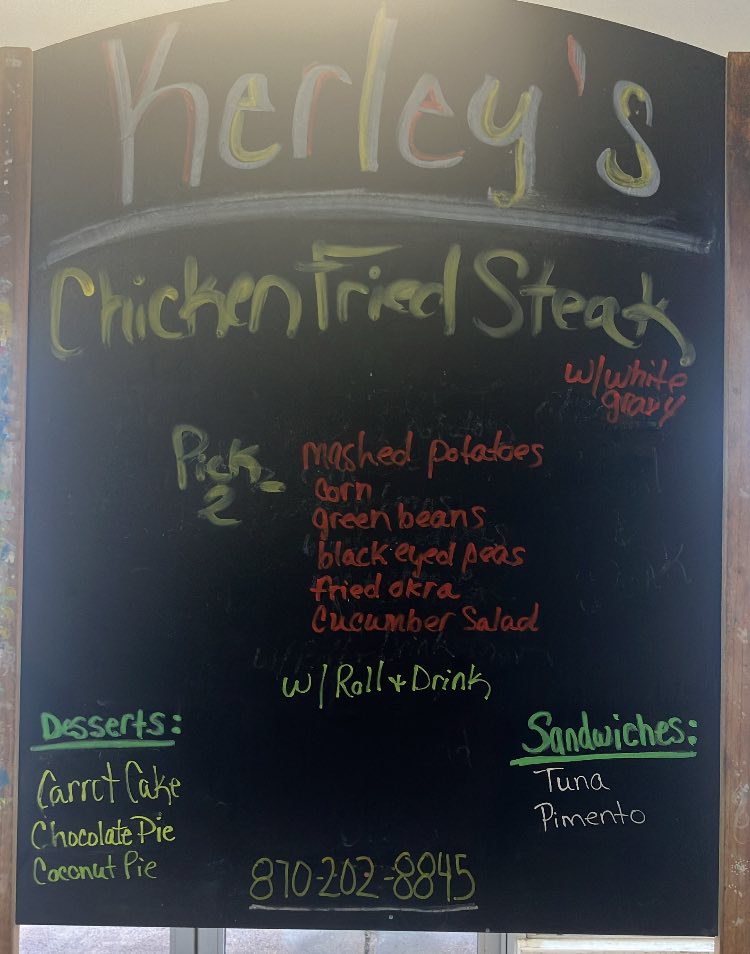 Kerley's
Chicken Fried Steak
w/white
gravy
Pick 2
mashed potatoes
corn
green beans
black eyed peas
fried okra
Cucumber Salad
w/ Roll + Drink
Desserts:
Carrot Cake
Chocolate Pie
Coconut Pie
Sandwiches:
Tuna
Pimento
870-202-8845